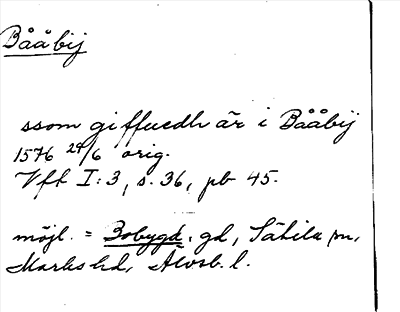 Bååbij
ssom giffuedh är i Bååbij
1576 24/6 orig.
Vft I:3, s. 36, pb 45.
möjl. = Bobygd, gd, Sätila sn,
Marks hd, Älvsb. l.